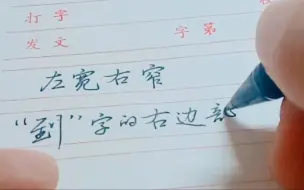 打 字
发 文 字 第
左宽右窄
“到”字的右边部